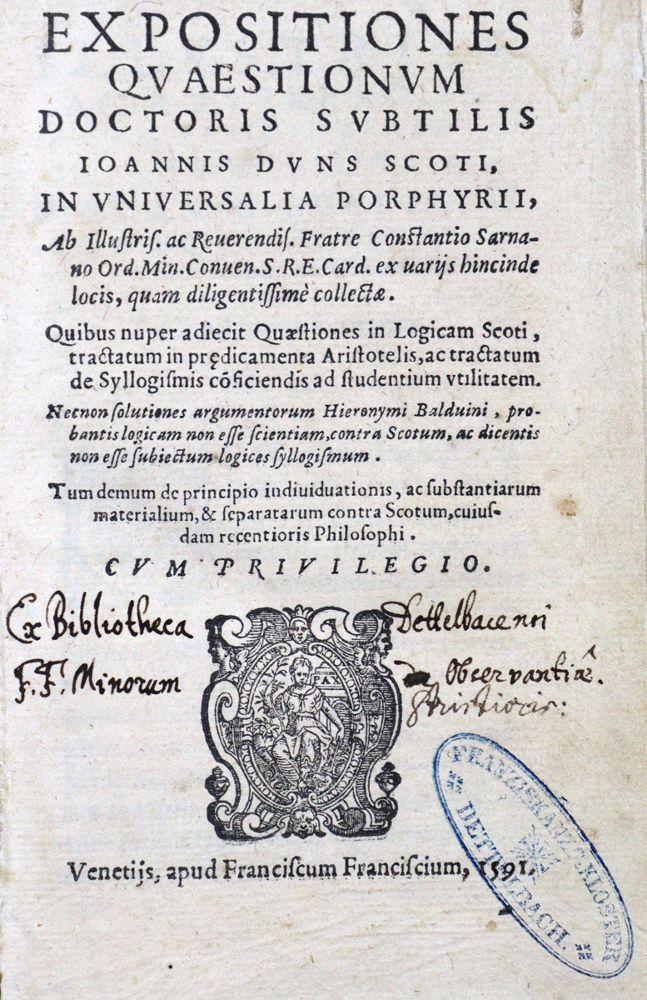 EXPOSITIONES
QVAESTIONVM
DOCTORIS SVBTILIS
IOANNIS DVNS SCOTI,
IN VNIVERSALIA PORPHYRII,
Ab Illuſtriſ. ac Reuerendiſ. Fratre Conſtantio Sarna-
no Ord. Min. Conuen. S. R. E. Card. ex uarijs hincinde
locis, quam diligentiſſimè collectæ.
Quibus nuper adiecit Quæſtiones in Logicam Scoti,
tractatum in prędicamenta Ariſtotelis, ac tractatum
de Syllogiſmis cōficiendis ad ſtudentium vtilitatem.
Necnon ſolutiones argumentorum Hieronymi Balduini, pro-
bantis logicam non eſſe ſcientiam, contra Scotum, ac dicentis
non eſſe ſubiectum logices ſyllogiſmum.
Tum demum de principio indiuiduationis, ac ſubſtantiarum
materialium, & ſeparatarum contra Scotum, cuiuſ-
dam recentioris Philoſophi.
CVM PRIVILEGIO.
Ex Bibliotheca Dettelbacensi
F.F. Minorum Observantiæ.
Strictioris:
PAX
Venetijs, apud Franciſcum Franciſcium, 1591.
FRANZISKANER-KLOSTER
DETTELBACH.